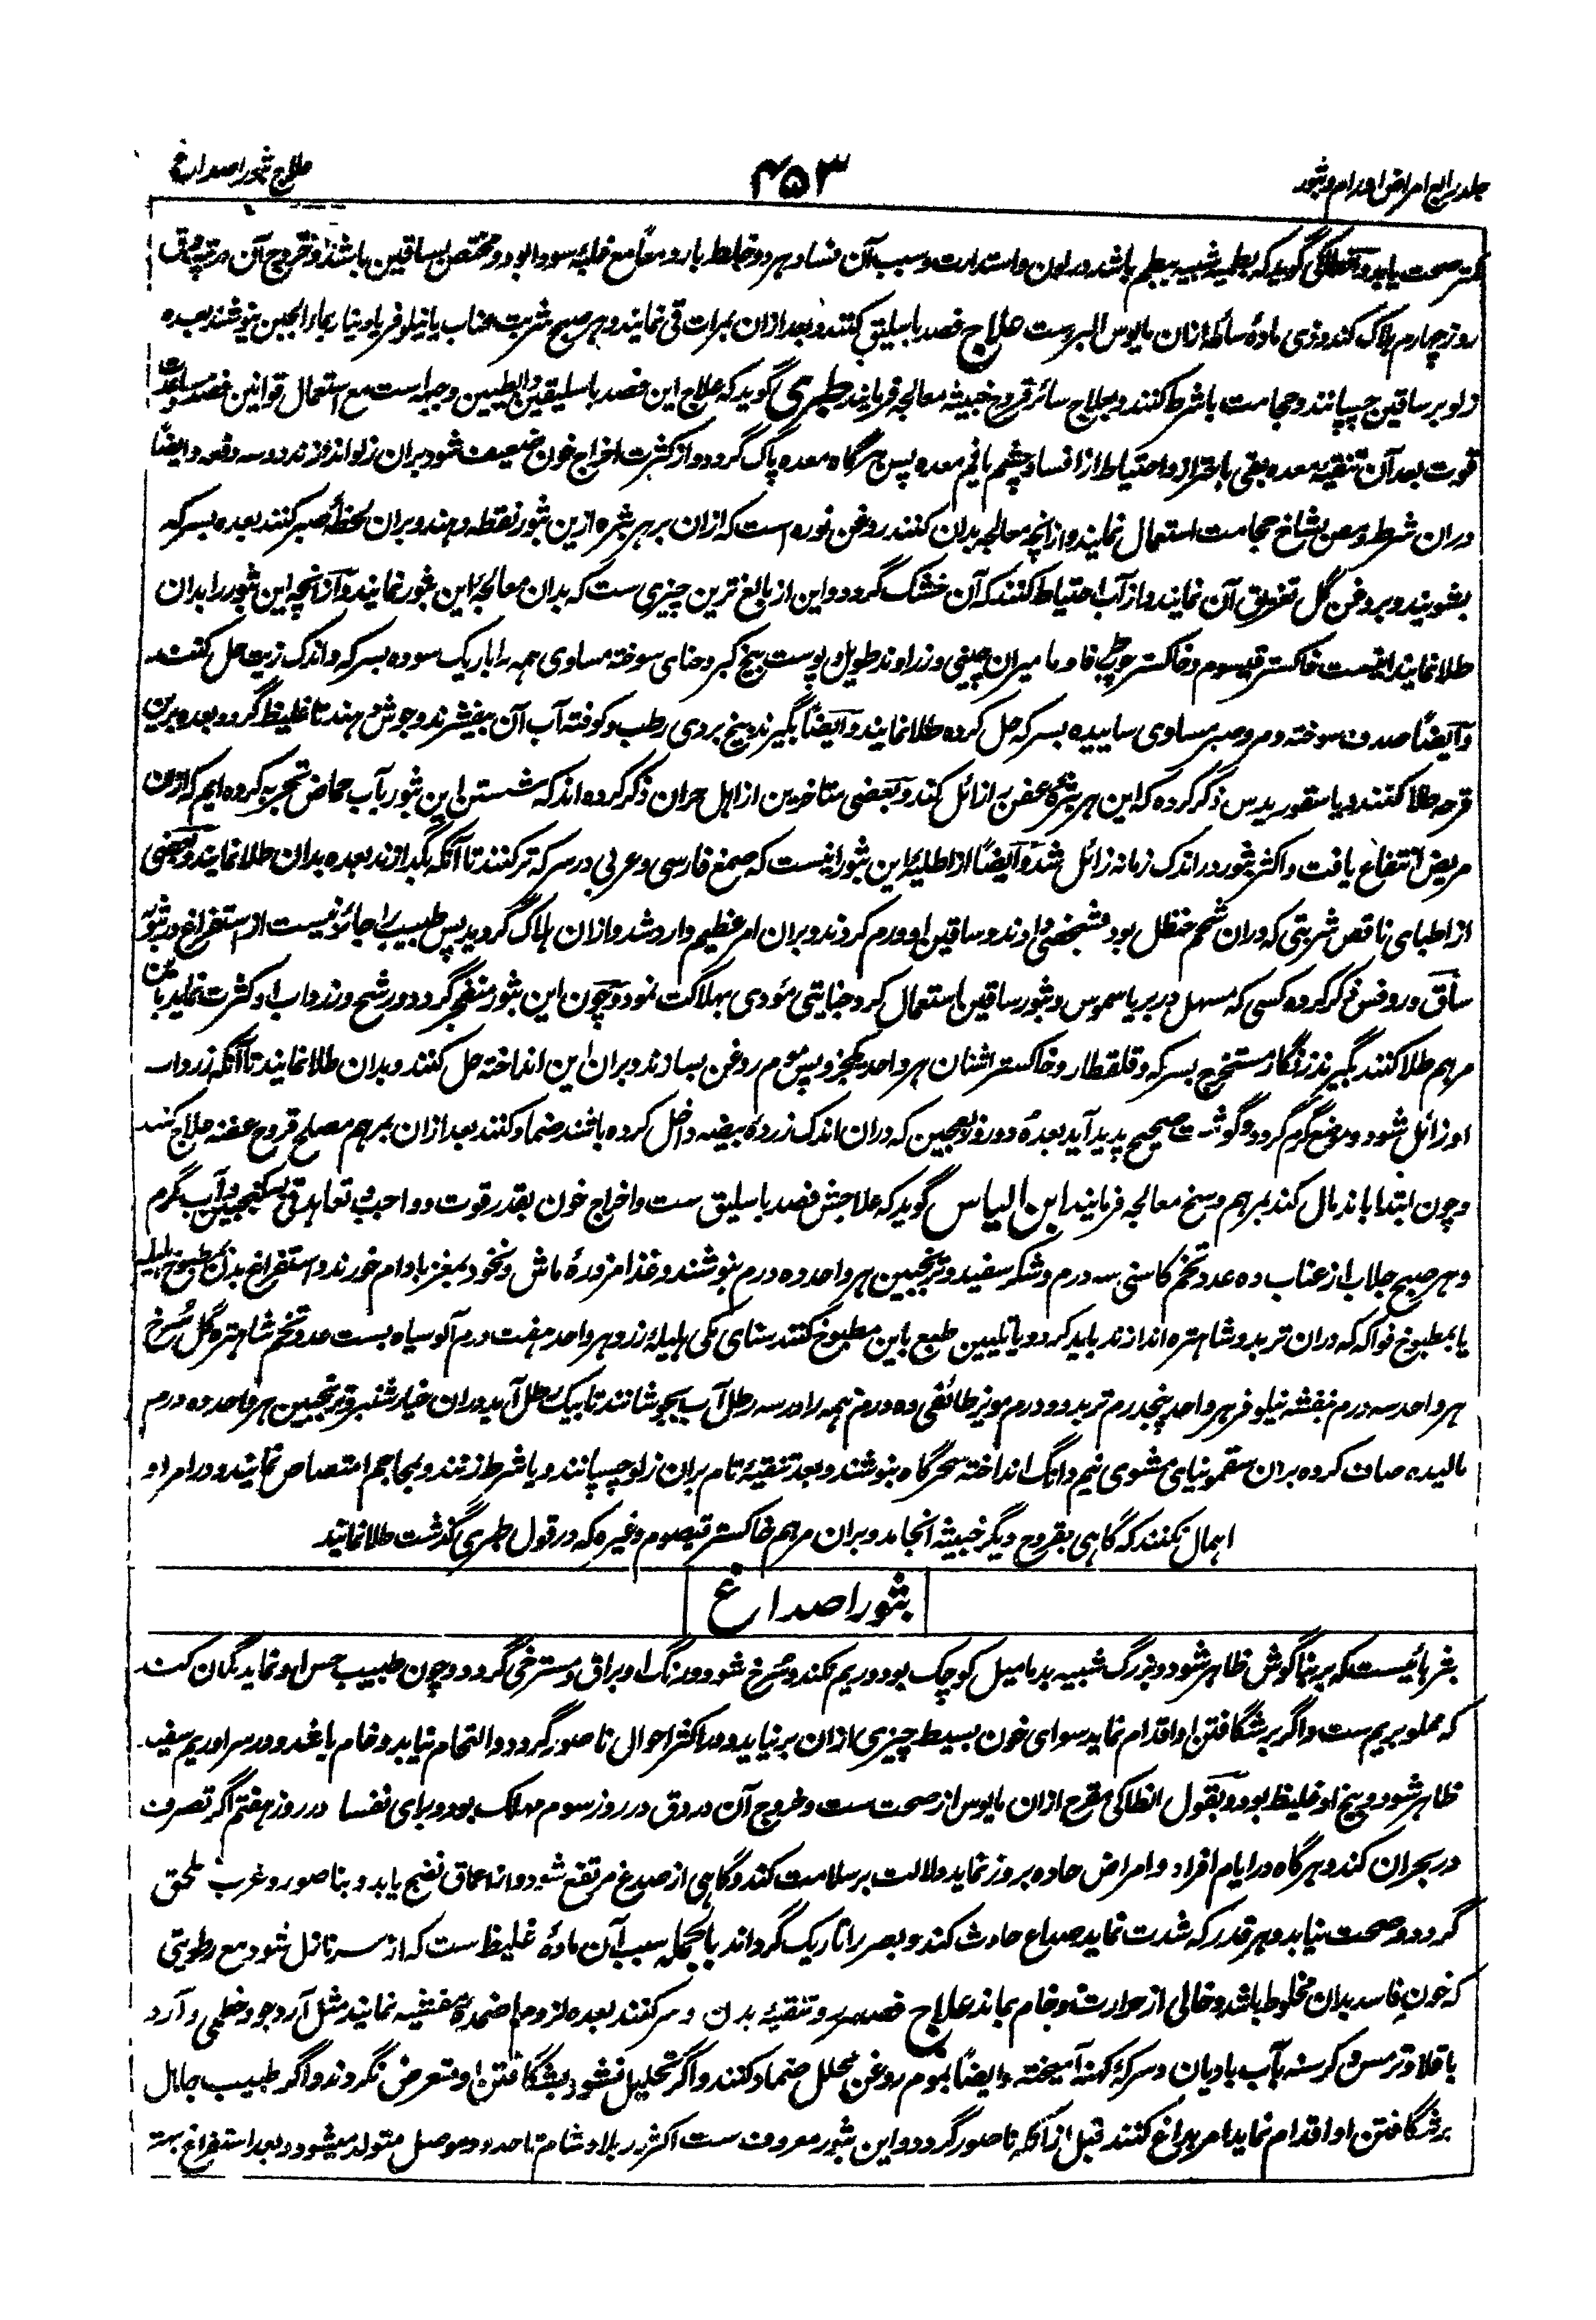 جلد رابع امراض اورام و بثور
۴۵۳
علاج بثور اصداغ
کمتر صحت یابد و انطاکی گوید که بطمیه شبیه ببطم باشد در لون و استدارت و سبب آن فساد هر دو خلط بارد معاً مع غلبه سودا بود و مختص بساقین باشد و خروج آن در تپ دق
روز چهارم هلاک کند و ذی مادهٔ سائله ازان مایوس البرست علاج فصد باسلیق کنند و بعد ازان بمرات قی نمایند و هر صبح شربت عناب یا نیلوفر یا دینار بماء الجبن بنوشند بعده
زلو بر ساقین چسپانند و حجامت باشرط کنند و بعلاج سائر قروح خبیثه معالجه فرمایند طبری گوید که علاج این فصد باسلیقین و ابطیین وجبهه است مع استعمال قوانین فصد و مساعدت
قوت بعد آن تنقیهٔ معده بقی باحتراز و احتیاط از افساد چشم یا فم معده پس هرگاه معده پاک گردد و از کثرت اخراج خون ضعیف شود بران زلو اندازند دو سه دفعه و ایضاً
دران شرط و مص بشاخ حجامت استعمال نمایند و ازانچه معالجه بدان کنند روغن نوره است که ازان بر هر بثره ازین بثور نقطه دهند و بران لحظهٔ صبر کنند بعده بسرکه
بشویند و بروغن گل تغریق آن نمایند و از آب احتیاط کنند که آن خشک گردد و این از بالغ ترین چیزی ست که بدان معالجهٔ این بثور نمایند و ازانچه این بثور را بدان
طلا نمایند اینست خاکستر قیسوم و خاکستر چوب غار و مامیران چینی و زراوند طویل و پوست بیخ کبر و حنای سوخته مساوی همه را باریک سوده بسرکه و اندک زیت حل کنند
و ایضاً صدف سوخته و مر و صبر مساوی ساییده بسرکه حل کرده طلا نمایند و ایضاً بگیرند بیخ بردی رطب و کوفته آب آن بیفشرند و جوش دهند تا غلیظ گردد بعده برین
قرحه طلا کنند و دیاسقوریدس ذکر کرده که این هر بثرهٔ عفن را زائل کند و بعضی متاخرین از اهل حران ذکر کرده اند که شستن این بثور بآب حماض تجربه کرده ایم که ازین
مریض انتفاع یافت و اکثر بثور در اندک زمانه زائل شد و ایضاً از اطلیهٔ این بثور اینست که صمغ فارسی و عربی در سرکه تر کنند تا آنکه بگدازند بعده بدان طلا نمایند و بعضی
از اطبای ناقص شربتی که دران شحم حنظل بود بشخصی دادند و ساقین او ورم کردند و بران امر عظیم وارد شد و ازان هلاک گردید پس طبیب را جائز نیست از استفراغ در بثور
ساق و روفس ذکر کرده کسی که مسهل در بریاسموس و بثور ساقین استعمال کرد جنایتی مؤدی بهلاکت نمود و چون این بثور منفجر گردد و رشح و زرداب او کثرت نماید باین
مرهم طلا کنند بگیرند زنگار مستخرج بسرکه و قلقطار و خاکستر اشنان هر واحد یکجزو پس موم روغن بسازند و بران این انداخته حل کنند و بدان طلا نمایند تا آنکه زرداب
او زائل شود و موضع گرم گردد و گوشت صحیح پدید آید بعدهٔ دو روز لاجبین که دران اندک زردهٔ بیضه داخل کرده باشند ضماد کنند بعد ازان بمرهم مصلح قروح عفنه علاج کنند
و چون ابتدا باندمال کند بمرهم وسخ معالجه فرمایند ابن الیاس گوید که علاجش فصد باسلیق ست و اخراج خون بقدر قوت و واجبست تعاهد قی بسکنجبین و آب گرم
و هر صبح جلاب از عناب ده عدد تخم کاسنی سه درم و شکر سفید و ترنجبین هر واحد ده درم بنوشند و غذا مزورهٔ ماش و نخود بمغز بادام خورند و استفراغ بدن بمطبوخ هلیله
یا بمطبوخ فواکه که دران تربد و شاهتره اندازند باید کرد و یا تلیین طبع باین مطبوخ کنند سنای مکی هلیلهٔ زرد هر واحد هفت درم آلو سیاه بست عدد تخم شاهتره گل سرخ
هر واحد سه درم بنفشه نیلوفر هر واحد پنجدرم تربد دو درم مویز طائفی ده درم همه را در سه رطل آب بجوشانند تا بیک رطل آید دران خیارشنبر و ترنجبین هر واحد ده درم
مالیده صاف کرده بران سقمونیای مشوی نیم دانگ انداخته سحرگاه بنوشند و بعد تنقیهٔ تام بران زلو چسپانند و یا شرط زنند و بمحاجم امتصاص نمایند و در امر او
اهمال نکنند که گاهی بقروح دیگر خبیثه انجامد و بران مرهم خاکستر قیصوم وغیره که در قول طبری گذشت طلا نمایند
بثور اصداغ
بثرهائیست که بر بناگوش ظاهر شود و بزرگ شبیه بدمامیل کوچک بود و ریم نکند و سرخ شود و رنگ او براق و مسترخی گردد و چون طبیب جس او نماید گمان کند
که مملو بریم ست و اگر بر شگافتن او اقدام نماید سوای خون بسیط چیزی ازان بر نیاید و در اکثر احوال ناصور گردد و التحام نیابد و خام باشد و در سر او ریم سفید
ظاهر شود و بیخ او غلیظ بود و بقول انطاکی مقرح ازان مایوس از صحت ست و خروج آن در دق در روز سوم مهلک بود و برای نفسا در روز هفتم اگر تصرف
در بحران کند و هرگاه در ایام افراد و امراض حاده بروز نماید دلالت بر سلامت کند و گاهی از صدغ مرتفع شود و از اعماق نضج یابد و بناصور و غرب ملحق
گردد و صحت نیابد و هر قدر که شدت نماید صداع حادث کند و بصر را تاریک گرداند بالجمله سبب آن مادهٔ غلیظ ست که از سر نازل شود مع رطوبتی
که خون فاسد بدان مخلوط باشد و خالی از حرارت و خام بماند علاج فصد سرر و تنقیهٔ بدن و سر کنند بعده لزوم اضمدهٔ مفشیه نمایند مثل آرد جو و خطمی و آرد
باقلا و ترمس و کرسنه بآب بادیان و سرکهٔ کهنه آمیخته و ایضاً بموم روغن محلل ضماد کنند و اگر تحلیل نشود بشگافتن او متعرض نگردند و اگر طبیب جاهل
بر شگافتن او اقدام نماید امر بداغ کنند قبل ازانکه ناصور گردد و این بثور معروف ست اکثر در بلاد شام تا حدود موصل متولد میشود و بعد استفراغ بهته